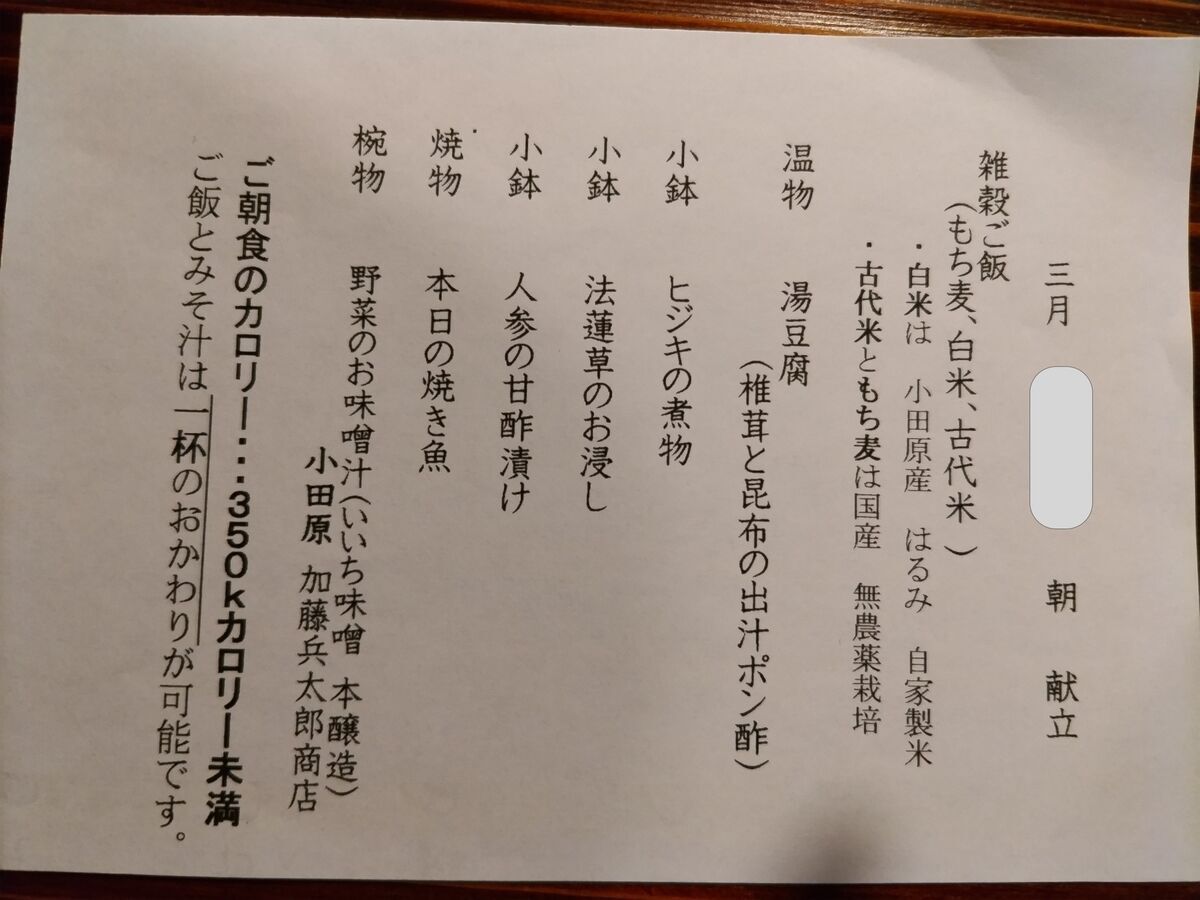 三月 朝 献立
雑穀ご飯
（もち麦、白米、古代米）
・白米は 小田原産 はるみ 自家製米
・古代米ともち麦は国産 無農薬栽培
温物 湯豆腐
（椎茸と昆布の出汁ポン酢）
小鉢 ヒジキの煮物
小鉢 法蓮草のお浸し
小鉢 人参の甘酢漬け
焼物 本日の焼き魚
椀物 野菜のお味噌汁（いいち味噌 本醸造）
小田原 加藤兵太郎商店
ご朝食のカロリー：：350kカロリー未満
ご飯とみそ汁は一杯のおかわりが可能です。